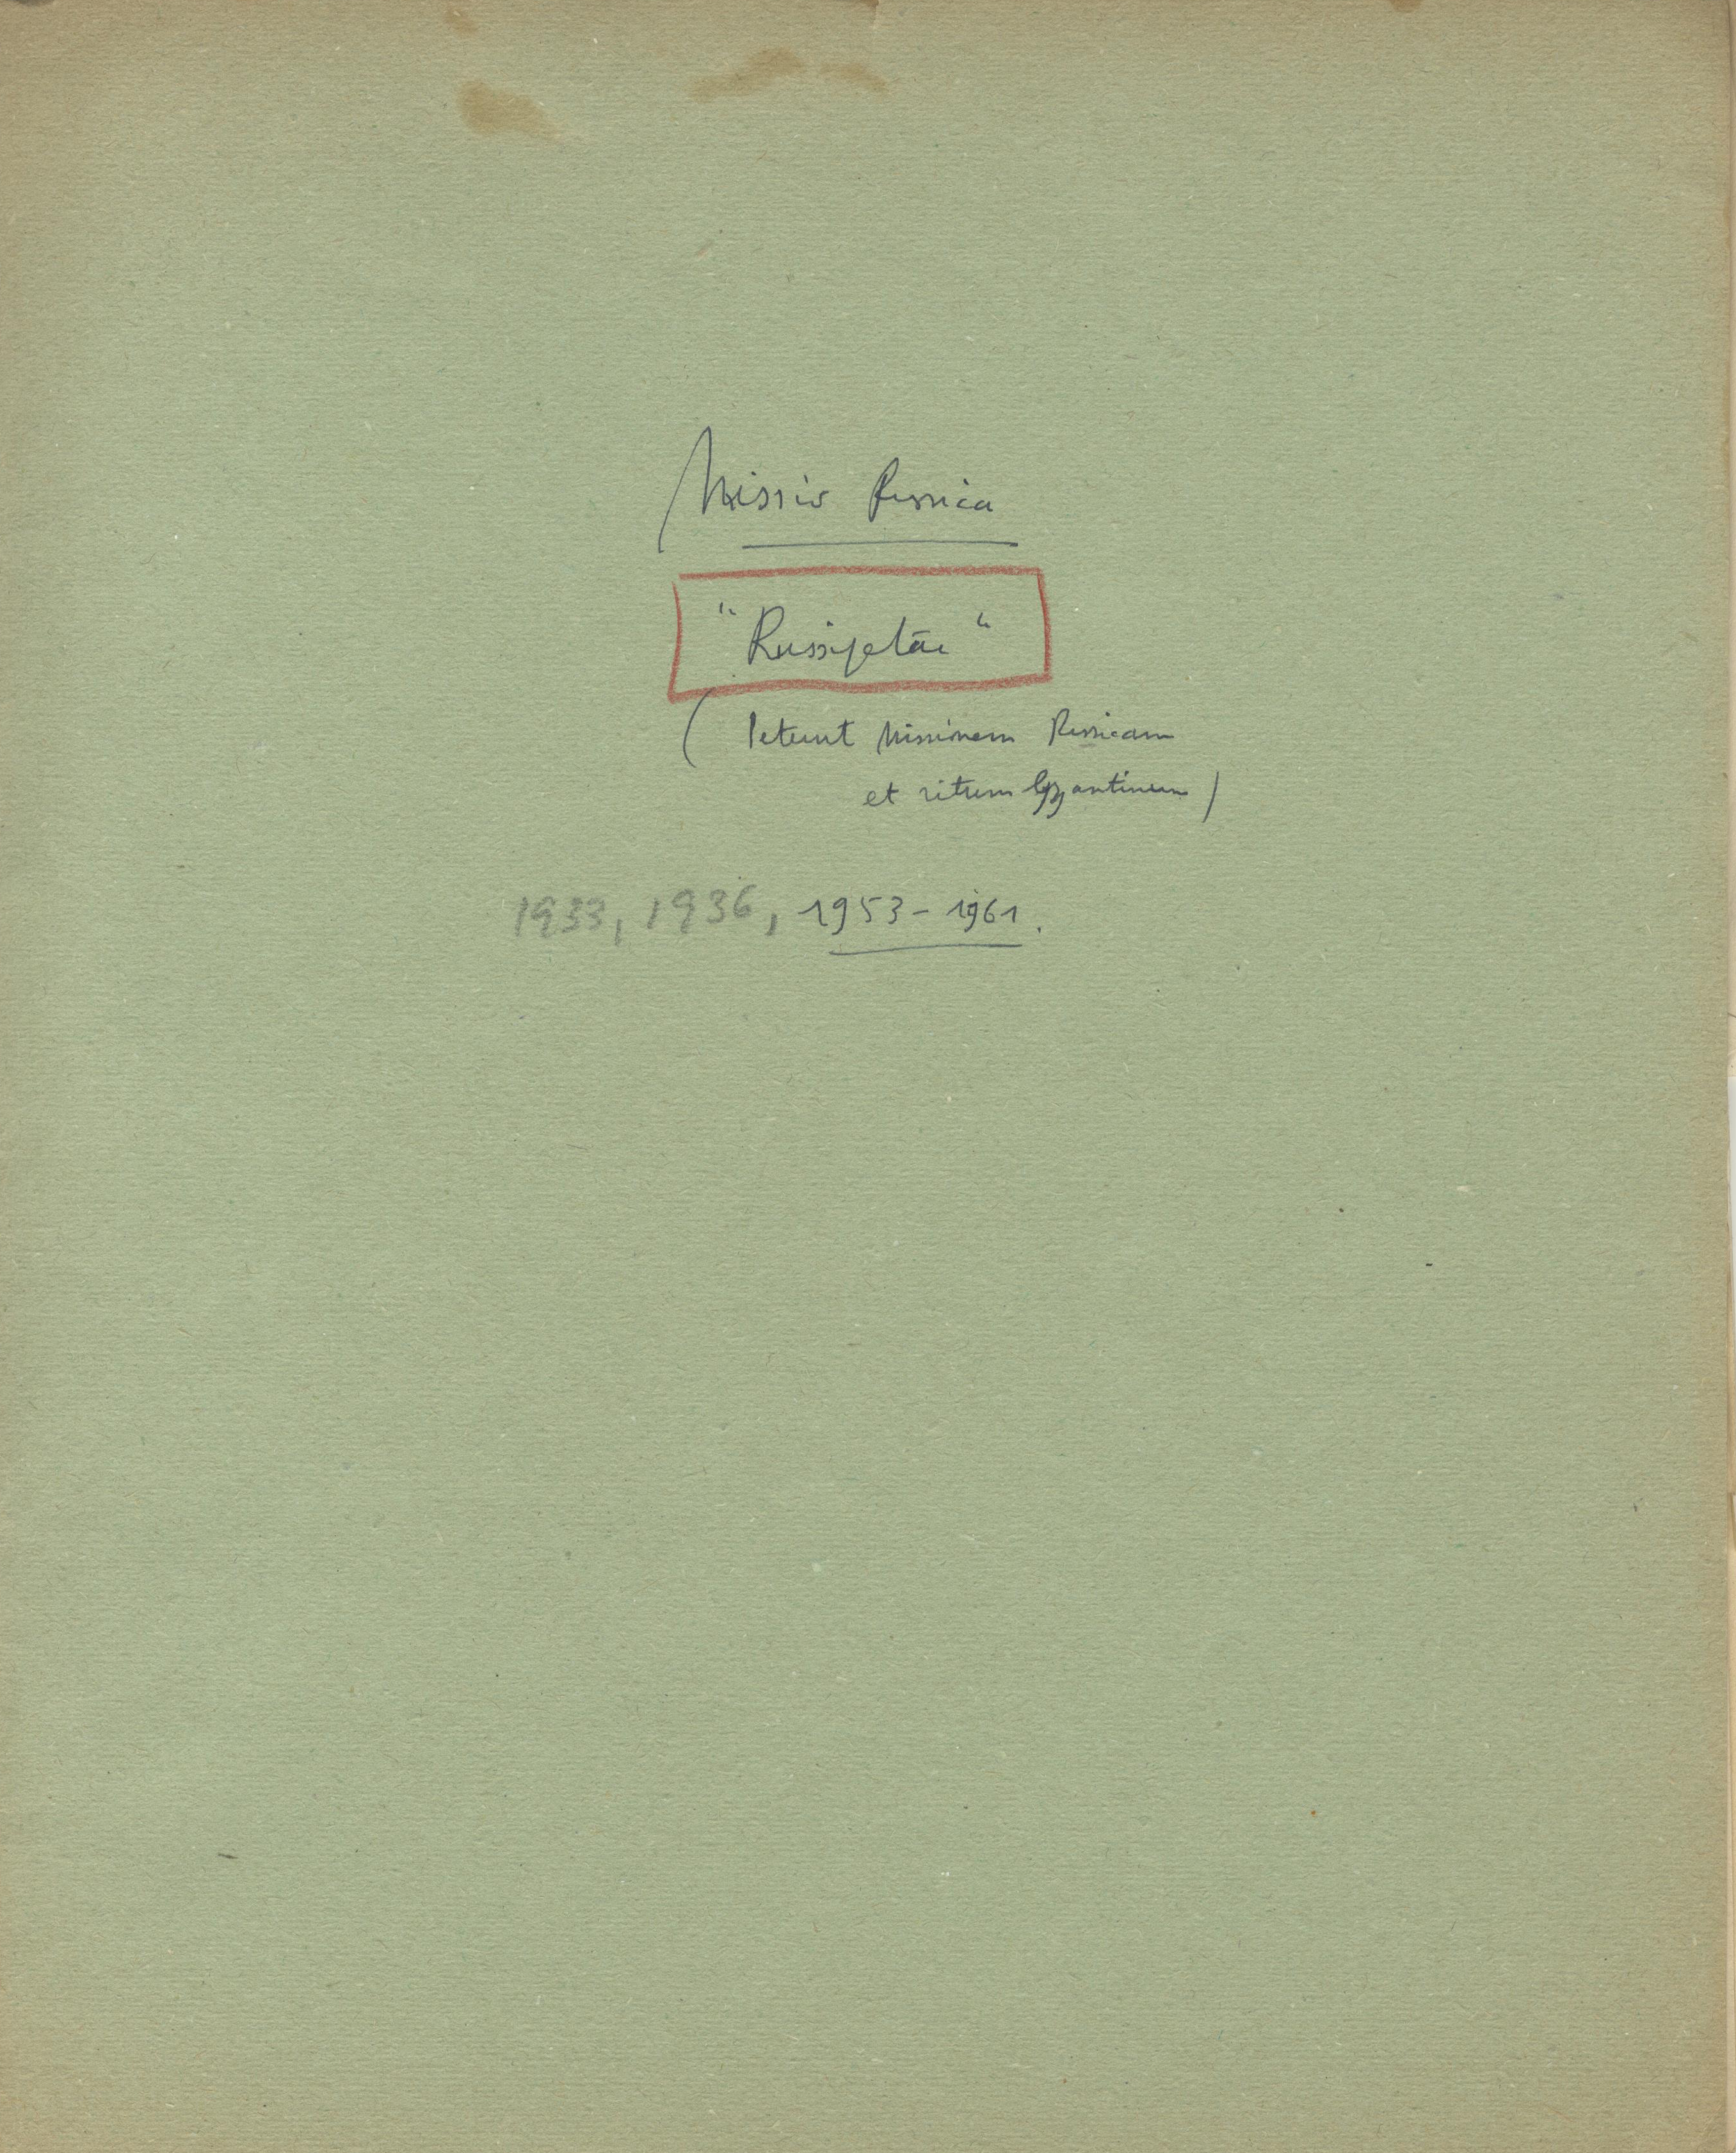 Missio Russica
"Russipetae"
(Petunt Missionem Russicam
et ritum byzantinum)
1933, 1936, 1953 - 1961.